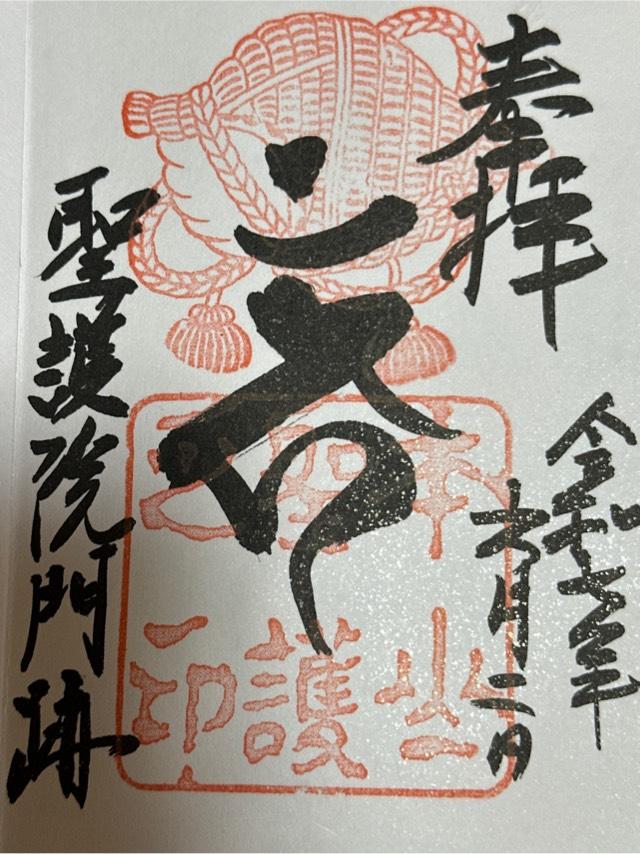 奉拝
令和七年
六月二日
聖護院門跡
本山
聖護
之印